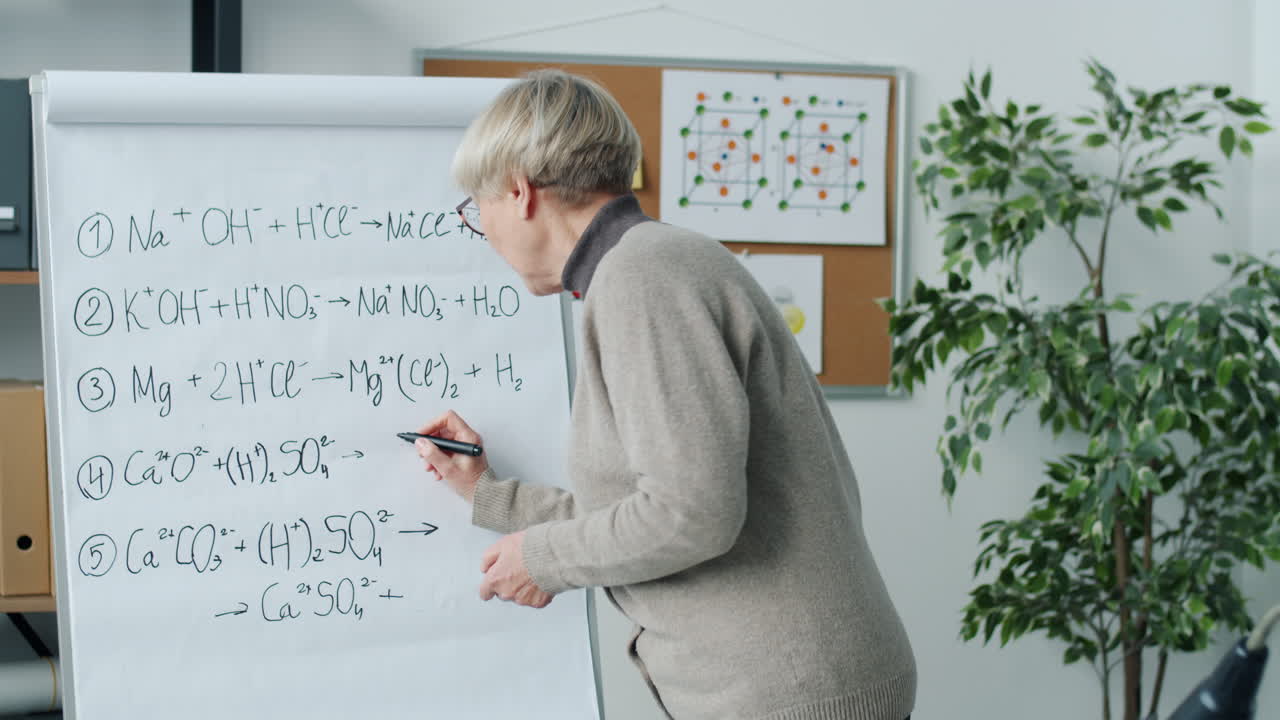 ① Na⁺OH⁻ + H⁺Cl⁻ → Na⁺Cl⁻ +
② K⁺OH⁻ + H⁺NO₃⁻ → Na⁺NO₃⁻ + H₂O
③ Mg + 2H⁺Cl⁻ → Mg²⁺(Cl⁻)₂ + H₂
④ Ca²⁺O²⁻ + (H⁺)₂SO₄²⁻ →
⑤ Ca²⁺CO₃²⁻ + (H⁺)₂SO₄²⁻ →
→ Ca²⁺SO₄²⁻ +